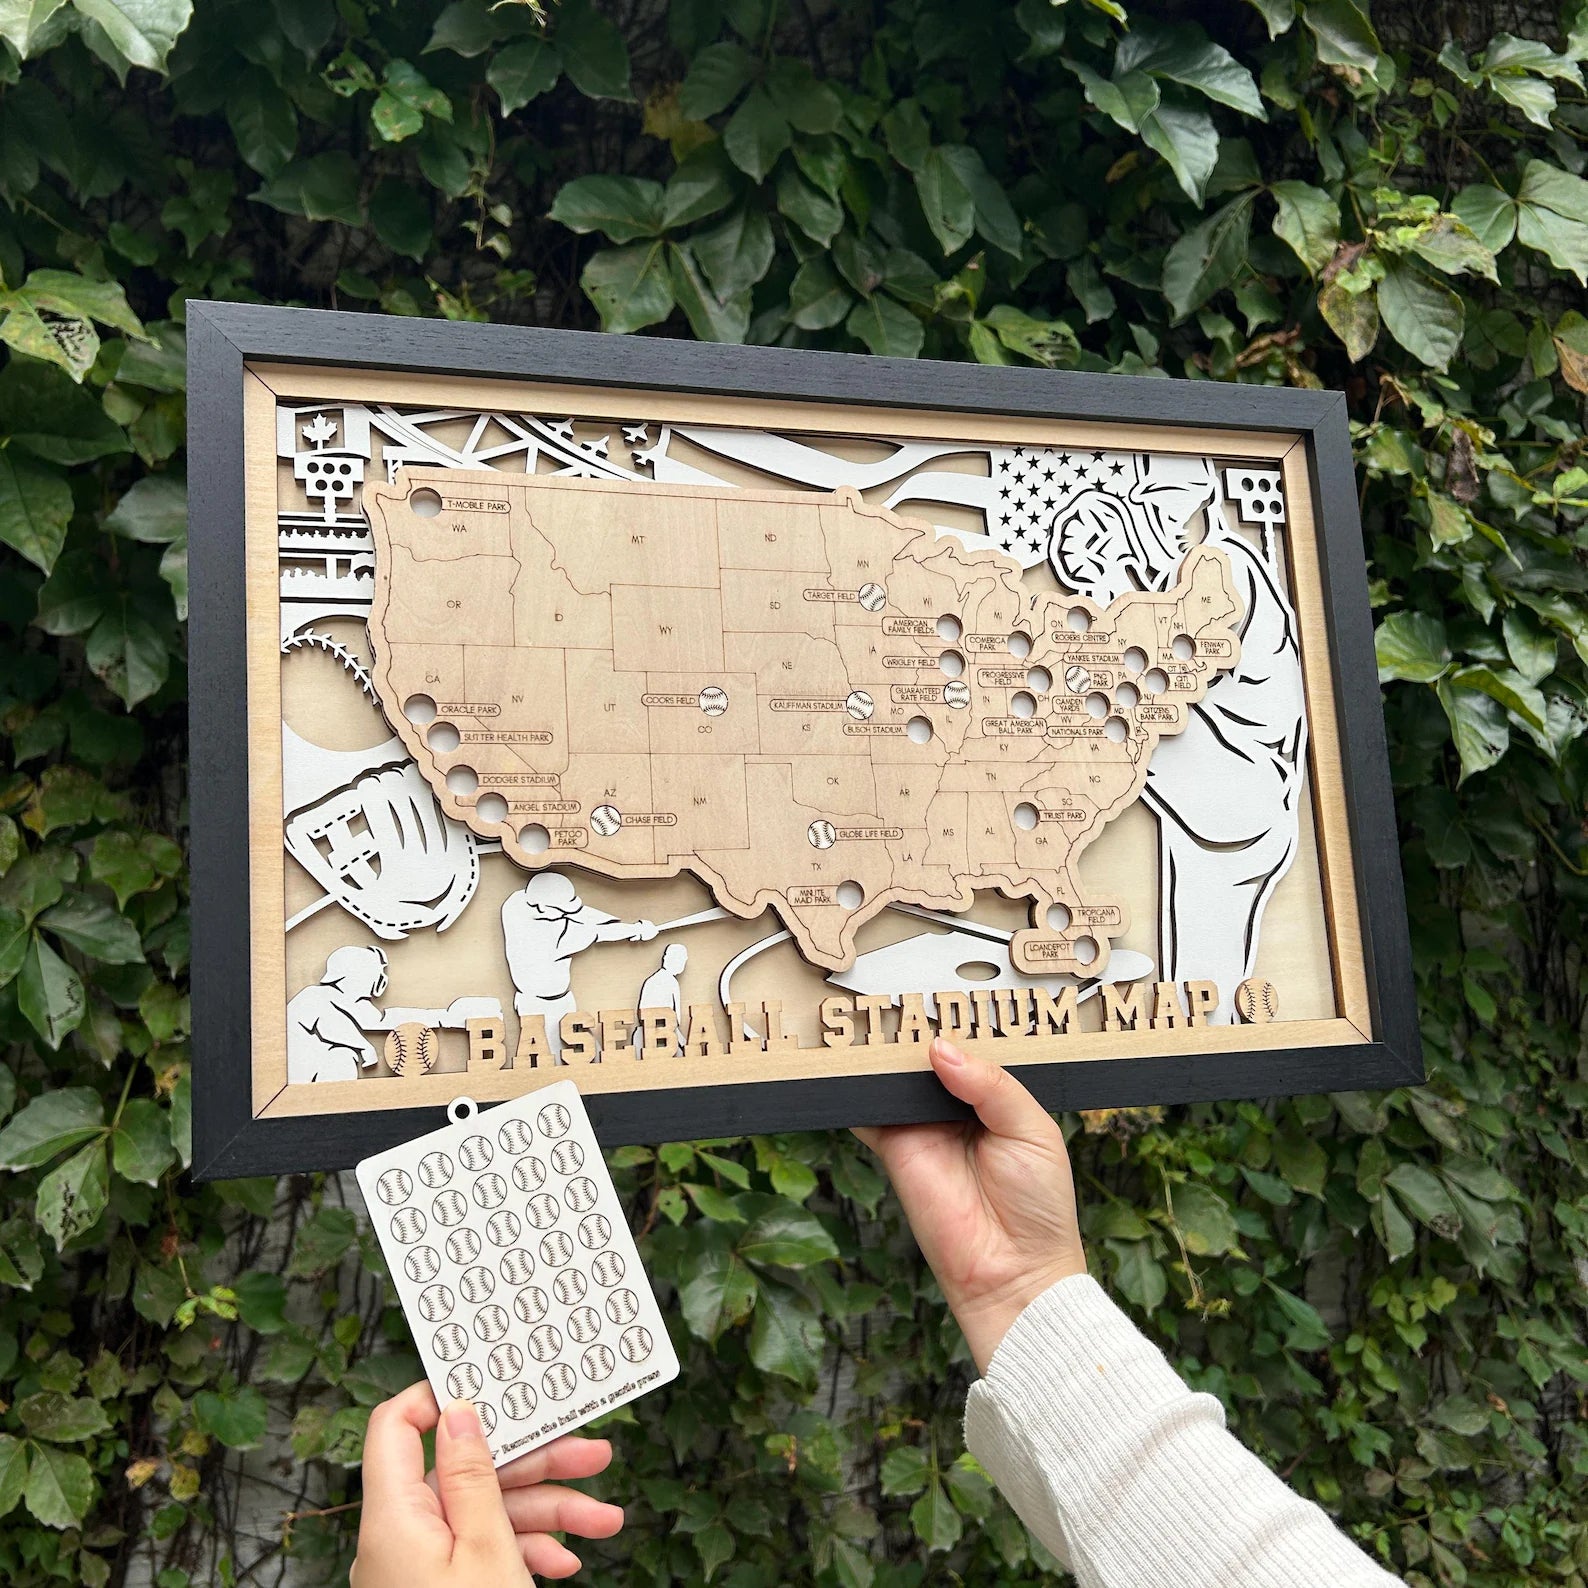 T-MOBILE PARK
WA
MT
ND
MN
OR
ID
SD
TARGET FIELD
WI
WY
AMERICAN
FAMILY FIELDS
MI
COMERICA
PARK
ON
ROGERS CENTRE
NY
VT
NH
ME
FENWAY
PARK
MA
CT
RI
IA
WRIGLEY FIELD
YANKEE STADIUM
NE
CA
NV
UT
COORS FIELD
CO
KAUFFMAN STADIUM
KS
GUARANTEED
RATE FIELD
MO
IL
IN
PROGRESSIVE
FIELD
OH
PNC
PARK
PA
NJ
CITI
FIELD
CAMDEN
YARDS
MD
CITIZENS
BANK PARK
WV
ORACLE PARK
SUTTER HEALTH PARK
BUSCH STADIUM
GREAT AMERICAN
BALL PARK
NATIONALS PARK
KY
VA
DODGER STADIUM
ANGEL STADIUM
PETCO
PARK
AZ
CHASE FIELD
NM
OK
AR
TN
NC
SC
TRUIST PARK
GLOBE LIFE FIELD
TX
LA
MS
AL
GA
MINUTE
MAID PARK
FL
TROPICANA
FIELD
LOANDEPOT
PARK
BASEBALL STADIUM MAP
Remove the ball with a gentle press